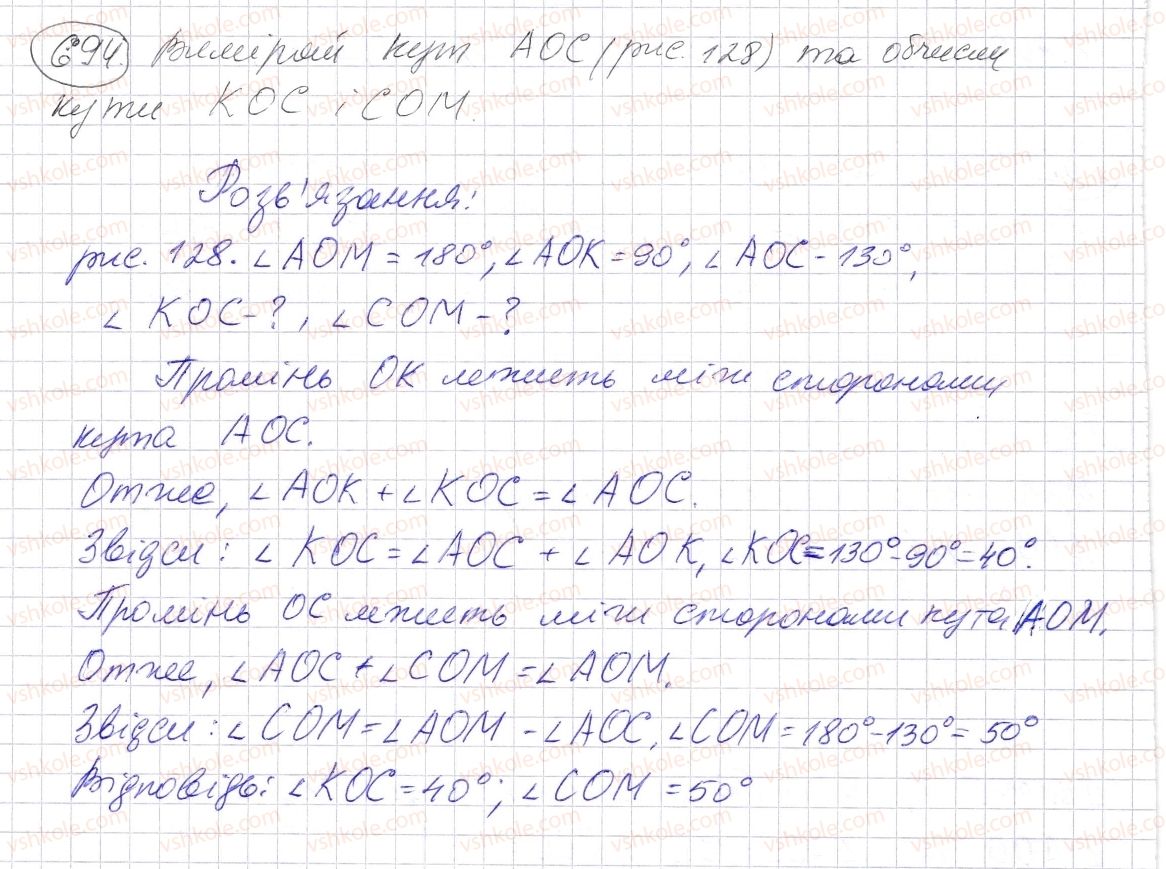 694. Виміряй кут AOC (рис. 128) та обчисли
кути KOC і COM.
Розв'язання:
рис. 128. ∠AOM = 180°, ∠AOK = 90°, ∠AOC - 130°,
∠ KOC - ?, ∠COM - ?
Промінь OK лежить між сторонами
кута AOC.
Отже, ∠AOK + ∠KOC = ∠AOC.
Звідси: ∠ KOC = ∠AOC + ∠AOK, ∠KOC = 130° - 90° = 40°.
Промінь OC лежить між сторонами кута AOM.
Отже, ∠AOC + ∠COM = ∠AOM.
Звідси: ∠COM = ∠AOM - ∠AOC, ∠COM = 180° - 130° = 50°
Відповідь: ∠KOC = 40°; ∠COM = 50°
vshkole.com